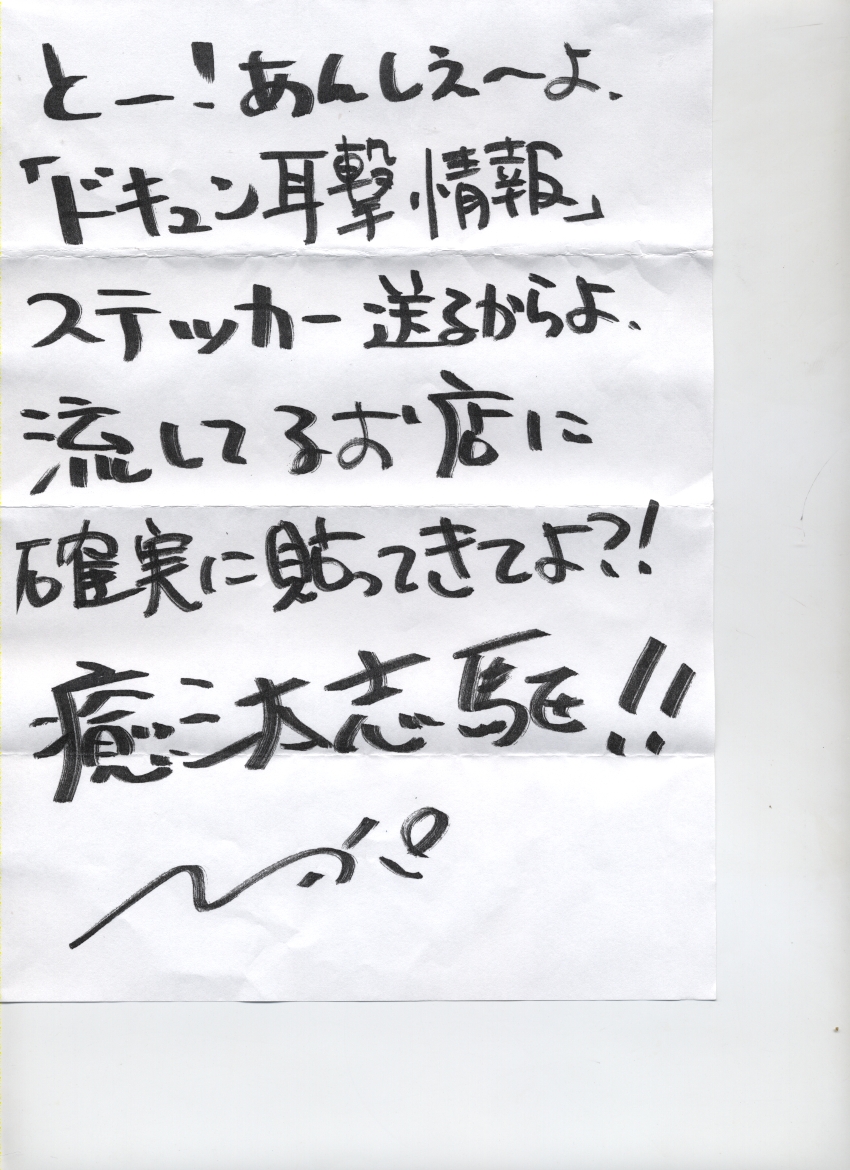 とー!あんしえ〜よ、
「ドキュン耳撃情報」
ステッカー送るからよ、
流してるお店に
確実に貼ってきてよ?!
癒三大志駆!!